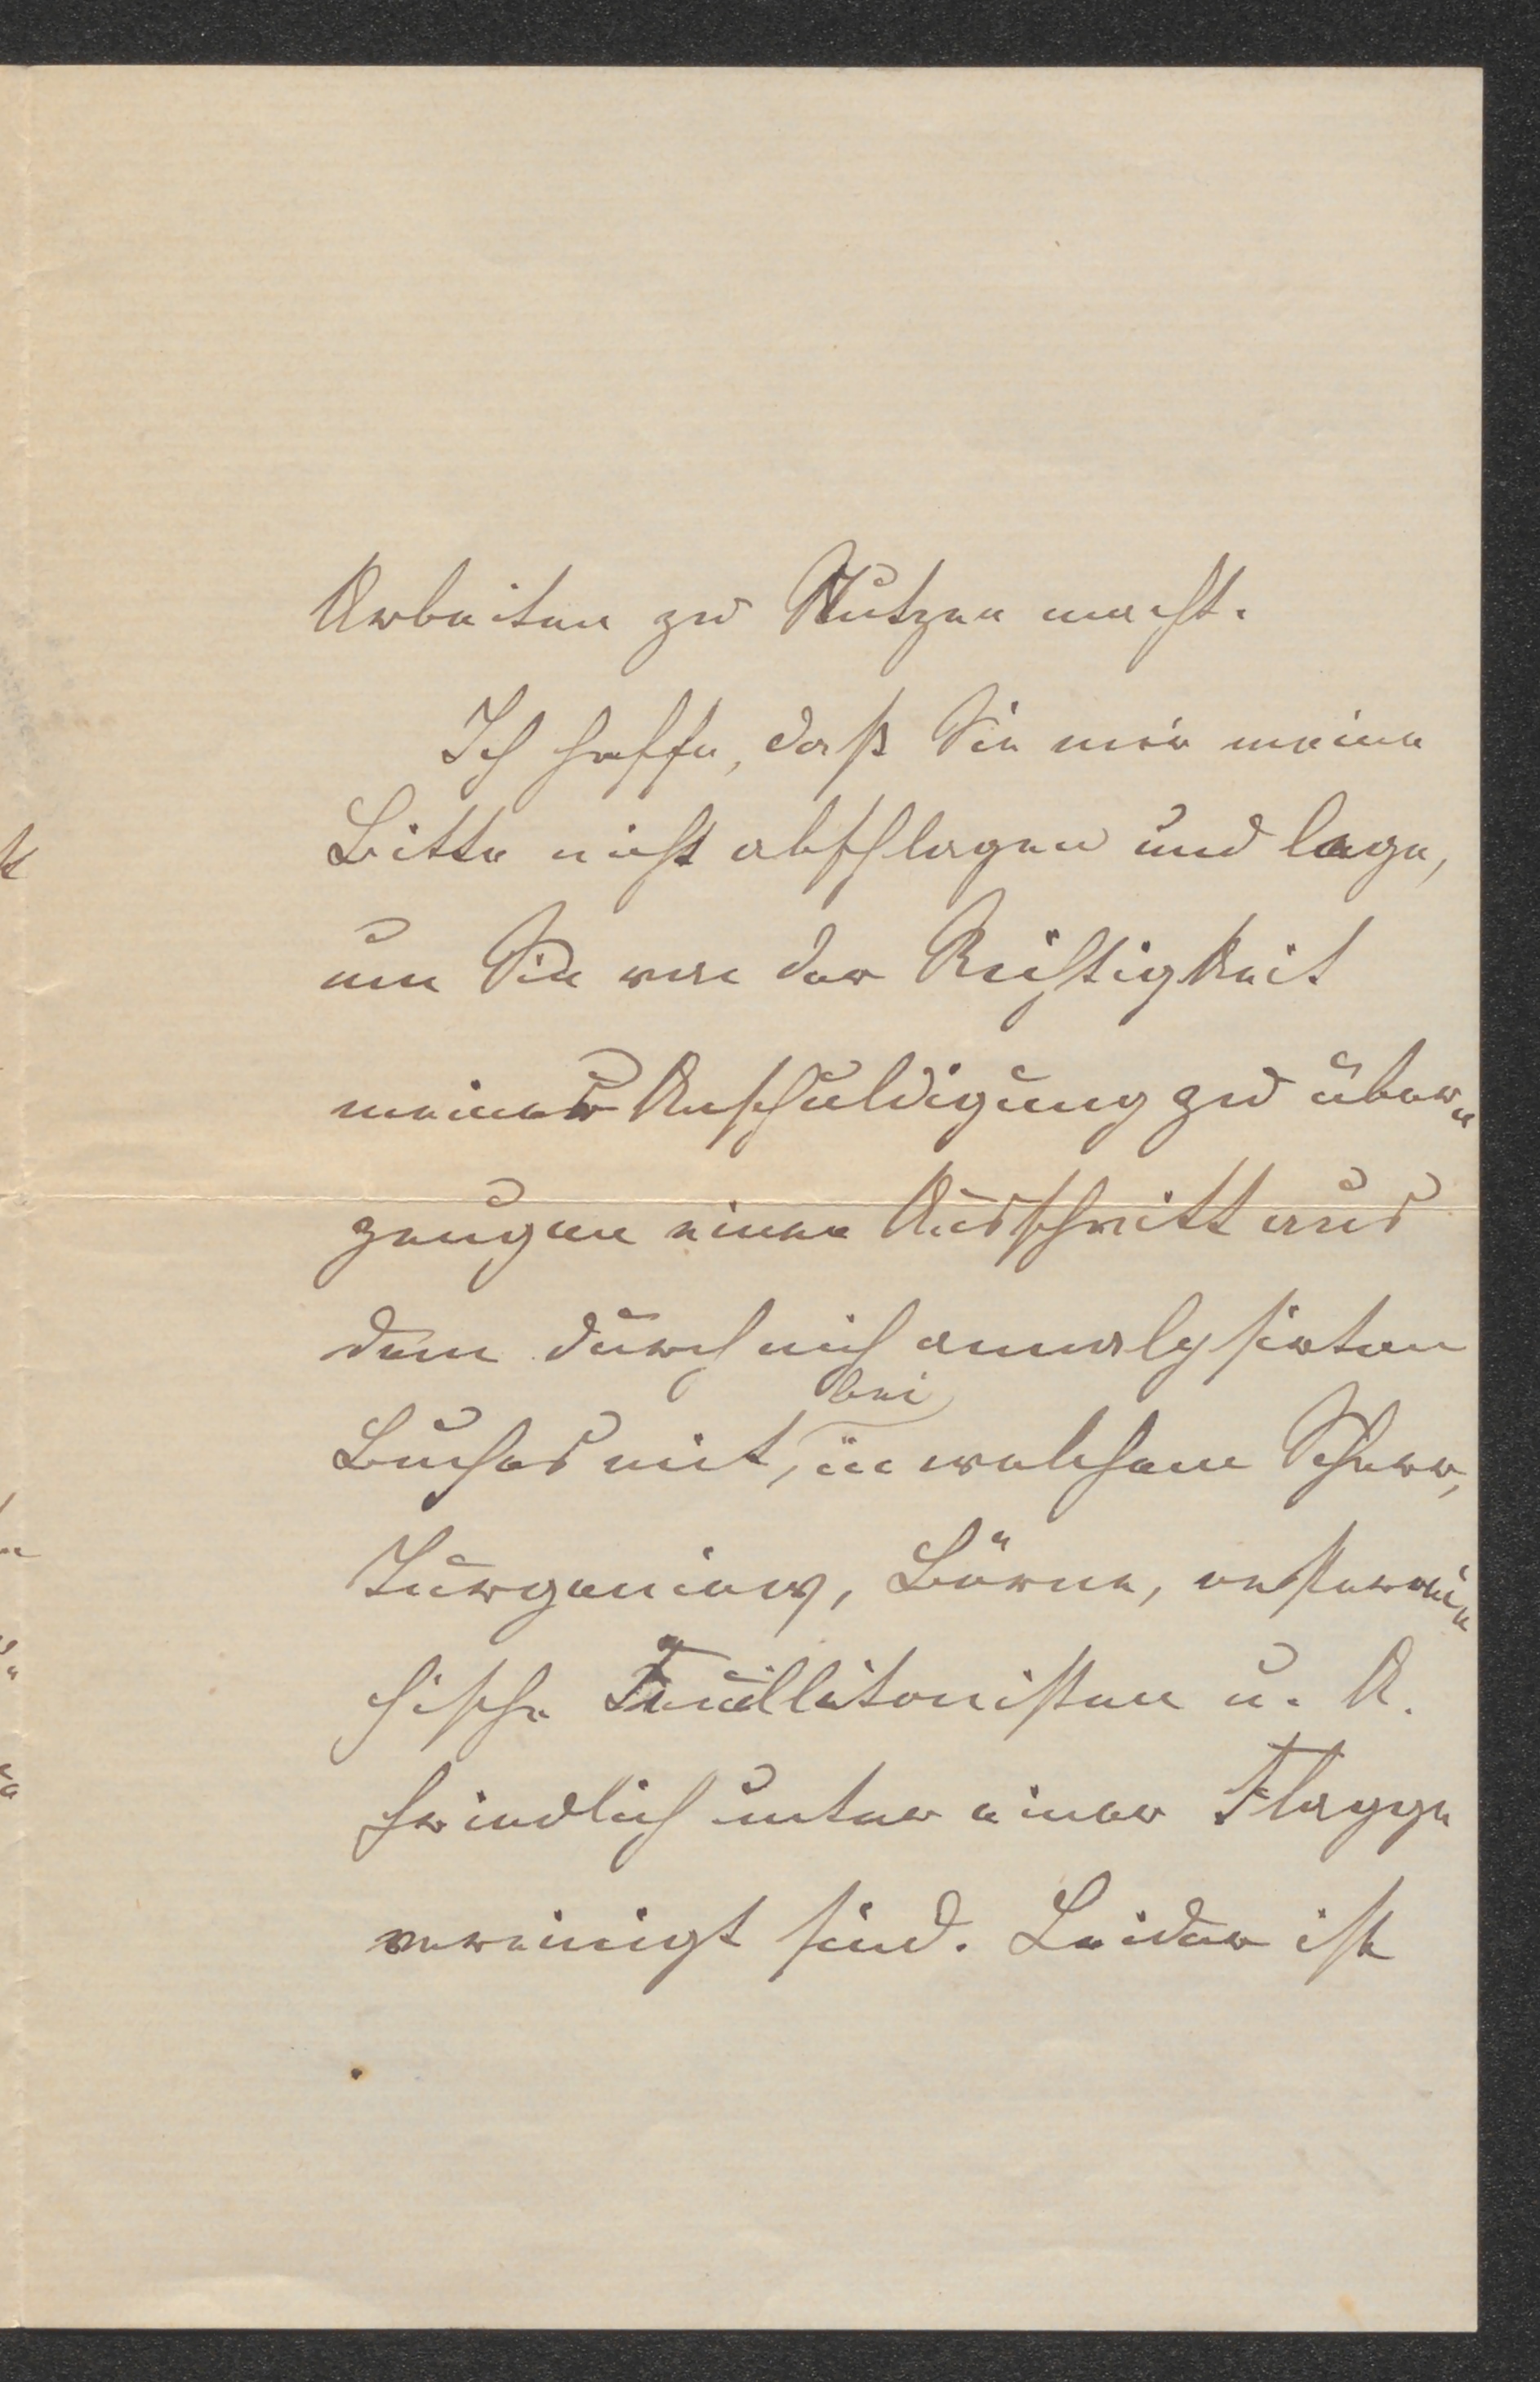 Arbeiten zu Nutzen macht.
Ich hoffe, daß Sie mir meine
Bitte nicht abschlagen und lege,
um Sie von der Richtigkeit
meiner Anschuldigung zu über„
zeugen einen Ausschnitt aus
dem durch mich annalysirten
bei
Buches mit, in welchem Scherr,
Turgeniew, Börne, oesterrei„
chische Feuilletonisten u. A.
friedlich unter einer Flagge
vereinigt sind. Leider ist